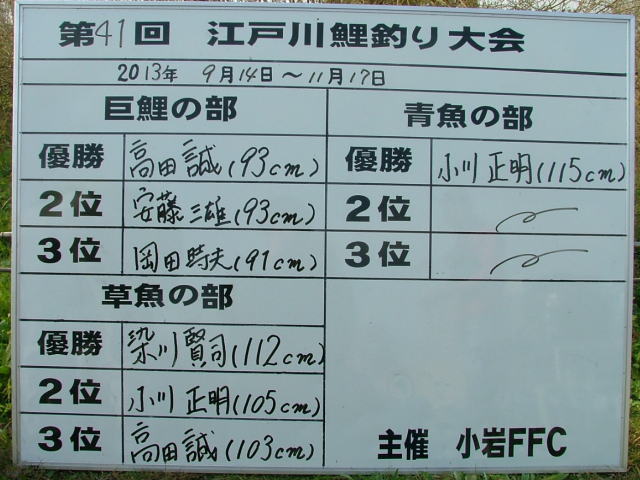 第41回 江戸川鯉釣り大会
2013年 9月14日～11月17日
巨鯉の部
優勝 高田誠(93cm)
2位 安藤三雄(93cm)
3位 岡田時夫(91cm)
草魚の部
優勝 染川賢司(112cm)
2位 小川正明(105cm)
3位 高田誠(103cm)
青魚の部
優勝 小川正明(115cm)
2位
3位
主催 小岩FFC